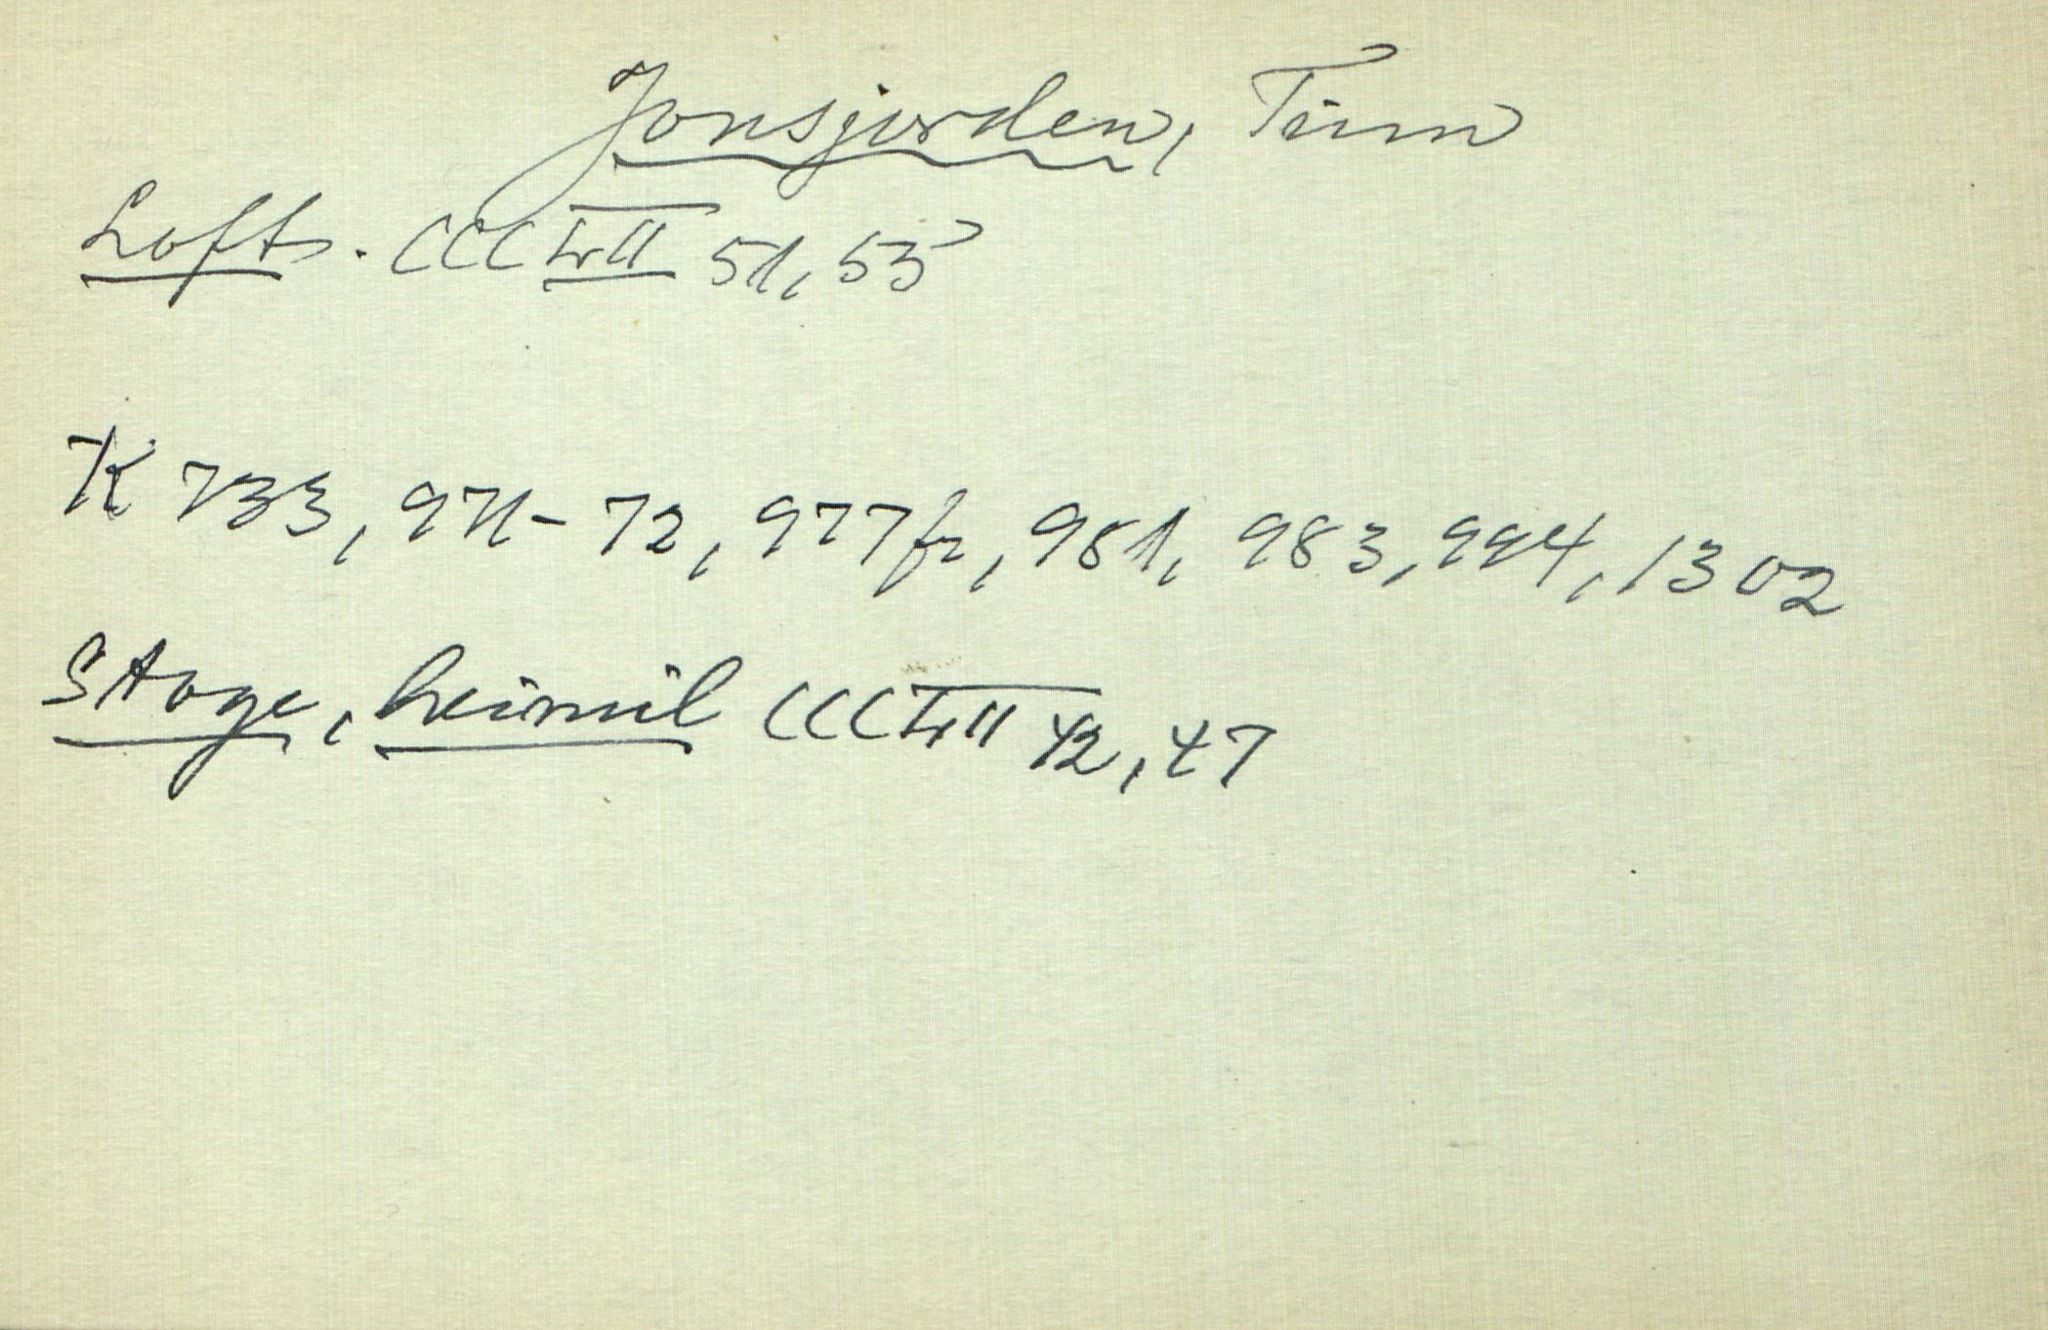 Jonsjorden, Tinn
Loft. CCCLVII 51, 53
K 733, 971-72, 977fr, 981, 983, 994, 1302
Stoge, heimil CCCLVII 42, 47